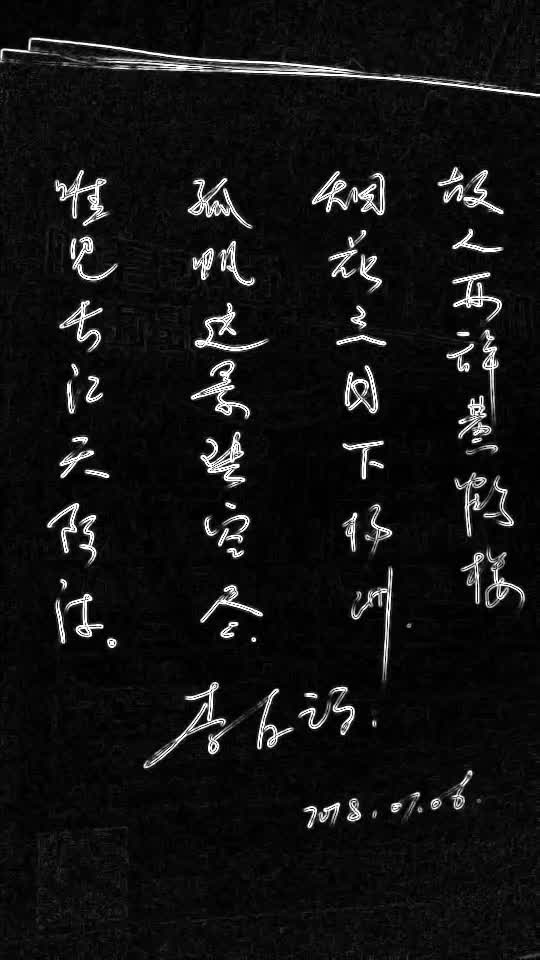 故人西辞黄鹤楼
烟花三月下扬州.
孤帆远景碧空尽.
唯见长江天际流。
李白诗.
2018.07.06.